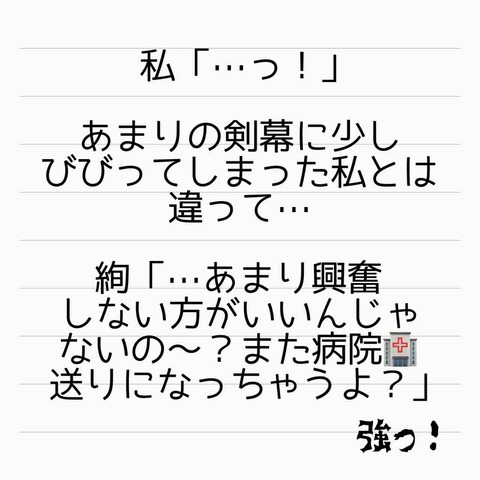 私「…っ！」
あまりの剣幕に少し
びびってしまった私とは
違って…
絢「…あまり興奮
しない方がいいんじゃ
ないの～？また病院🏥
送りになっちゃうよ？」
強っ！